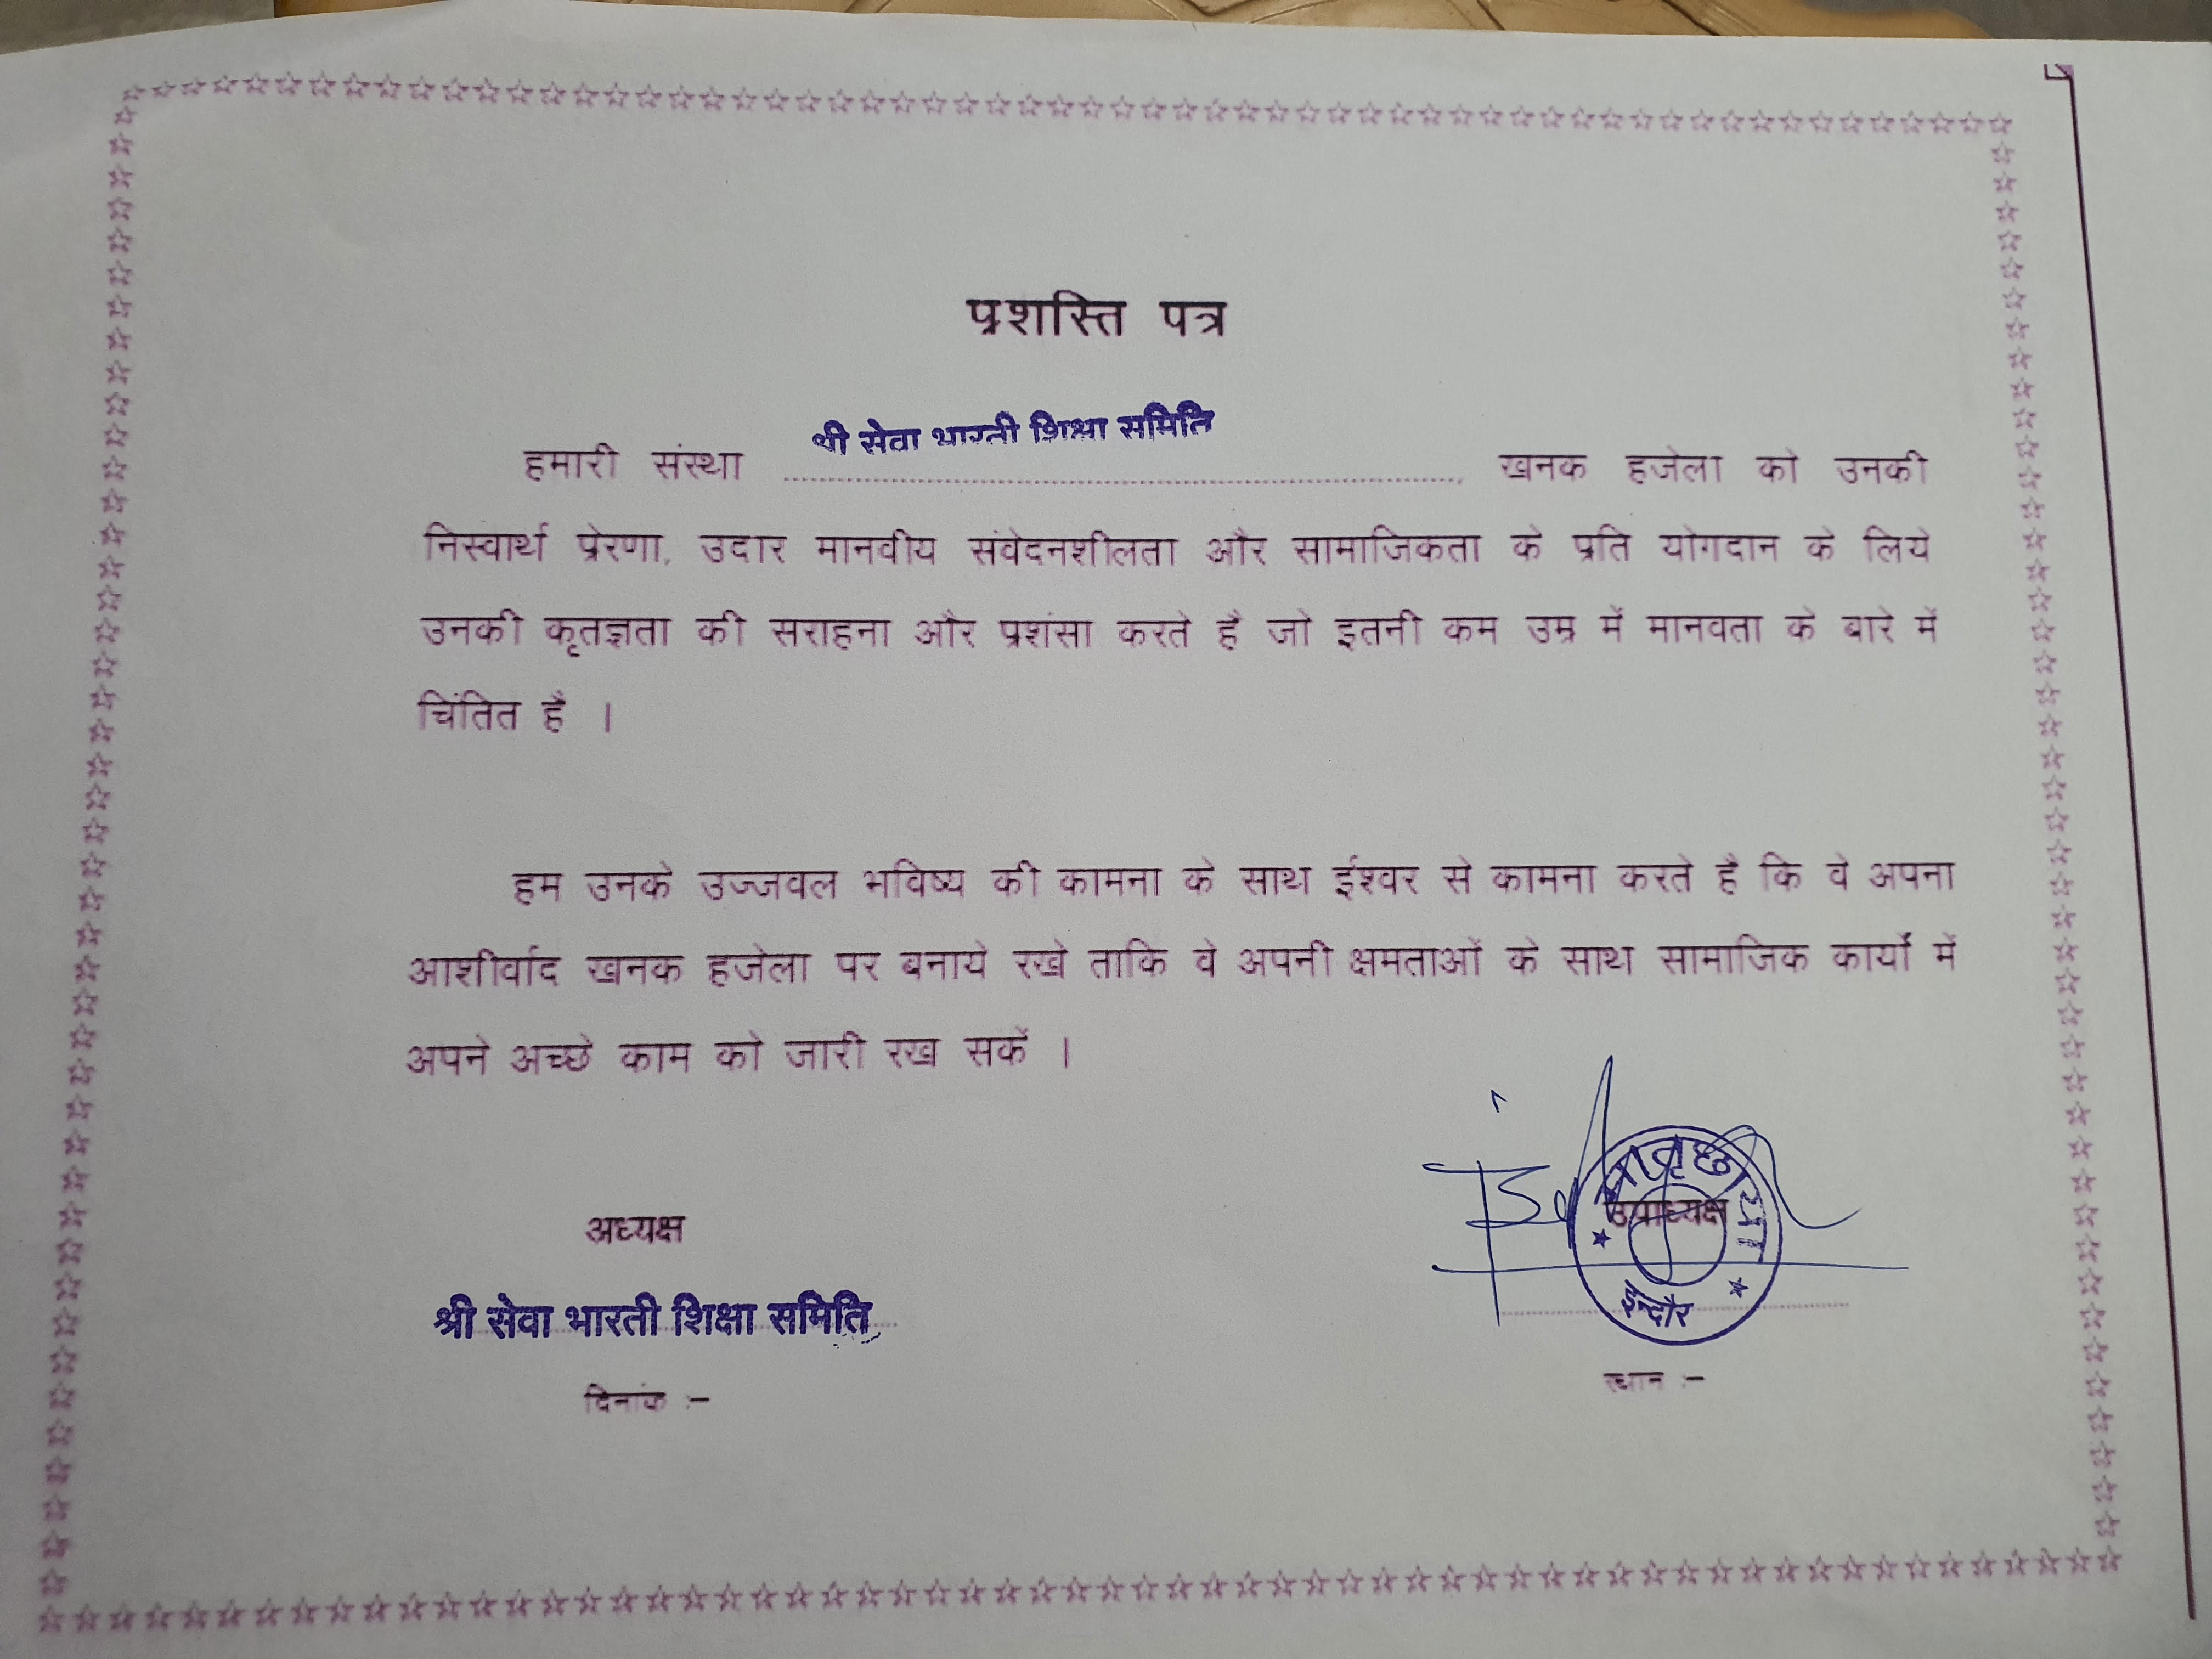 प्रशस्ति पत्र
श्री सेवा भारती शिक्षा समिति
हमारी संस्था ........................ खनक हजेला को उनकी
निस्वार्थ प्रेरणा, उदार मानवीय संवेदनशीलता और सामाजिकता के प्रति योगदान के लिये
उनकी कृतज्ञता की सराहना और प्रशंसा करते है जो इतनी कम उम्र में मानवता के बारे में
चिंतित है ।
हम उनके उज्जवल भविष्य की कामना के साथ ईश्वर से कामना करते है कि वे अपना
आशीर्वाद खनक हजेला पर बनाये रखे ताकि वे अपनी क्षमताओं के साथ सामाजिक कार्यों में
अपने अच्छे काम को जारी रख सकें ।
अध्यक्ष
श्री सेवा भारती शिक्षा समिति
दिनांक :-
उपाध्यक्ष
मातृछाया
इन्दौर
स्थान :-